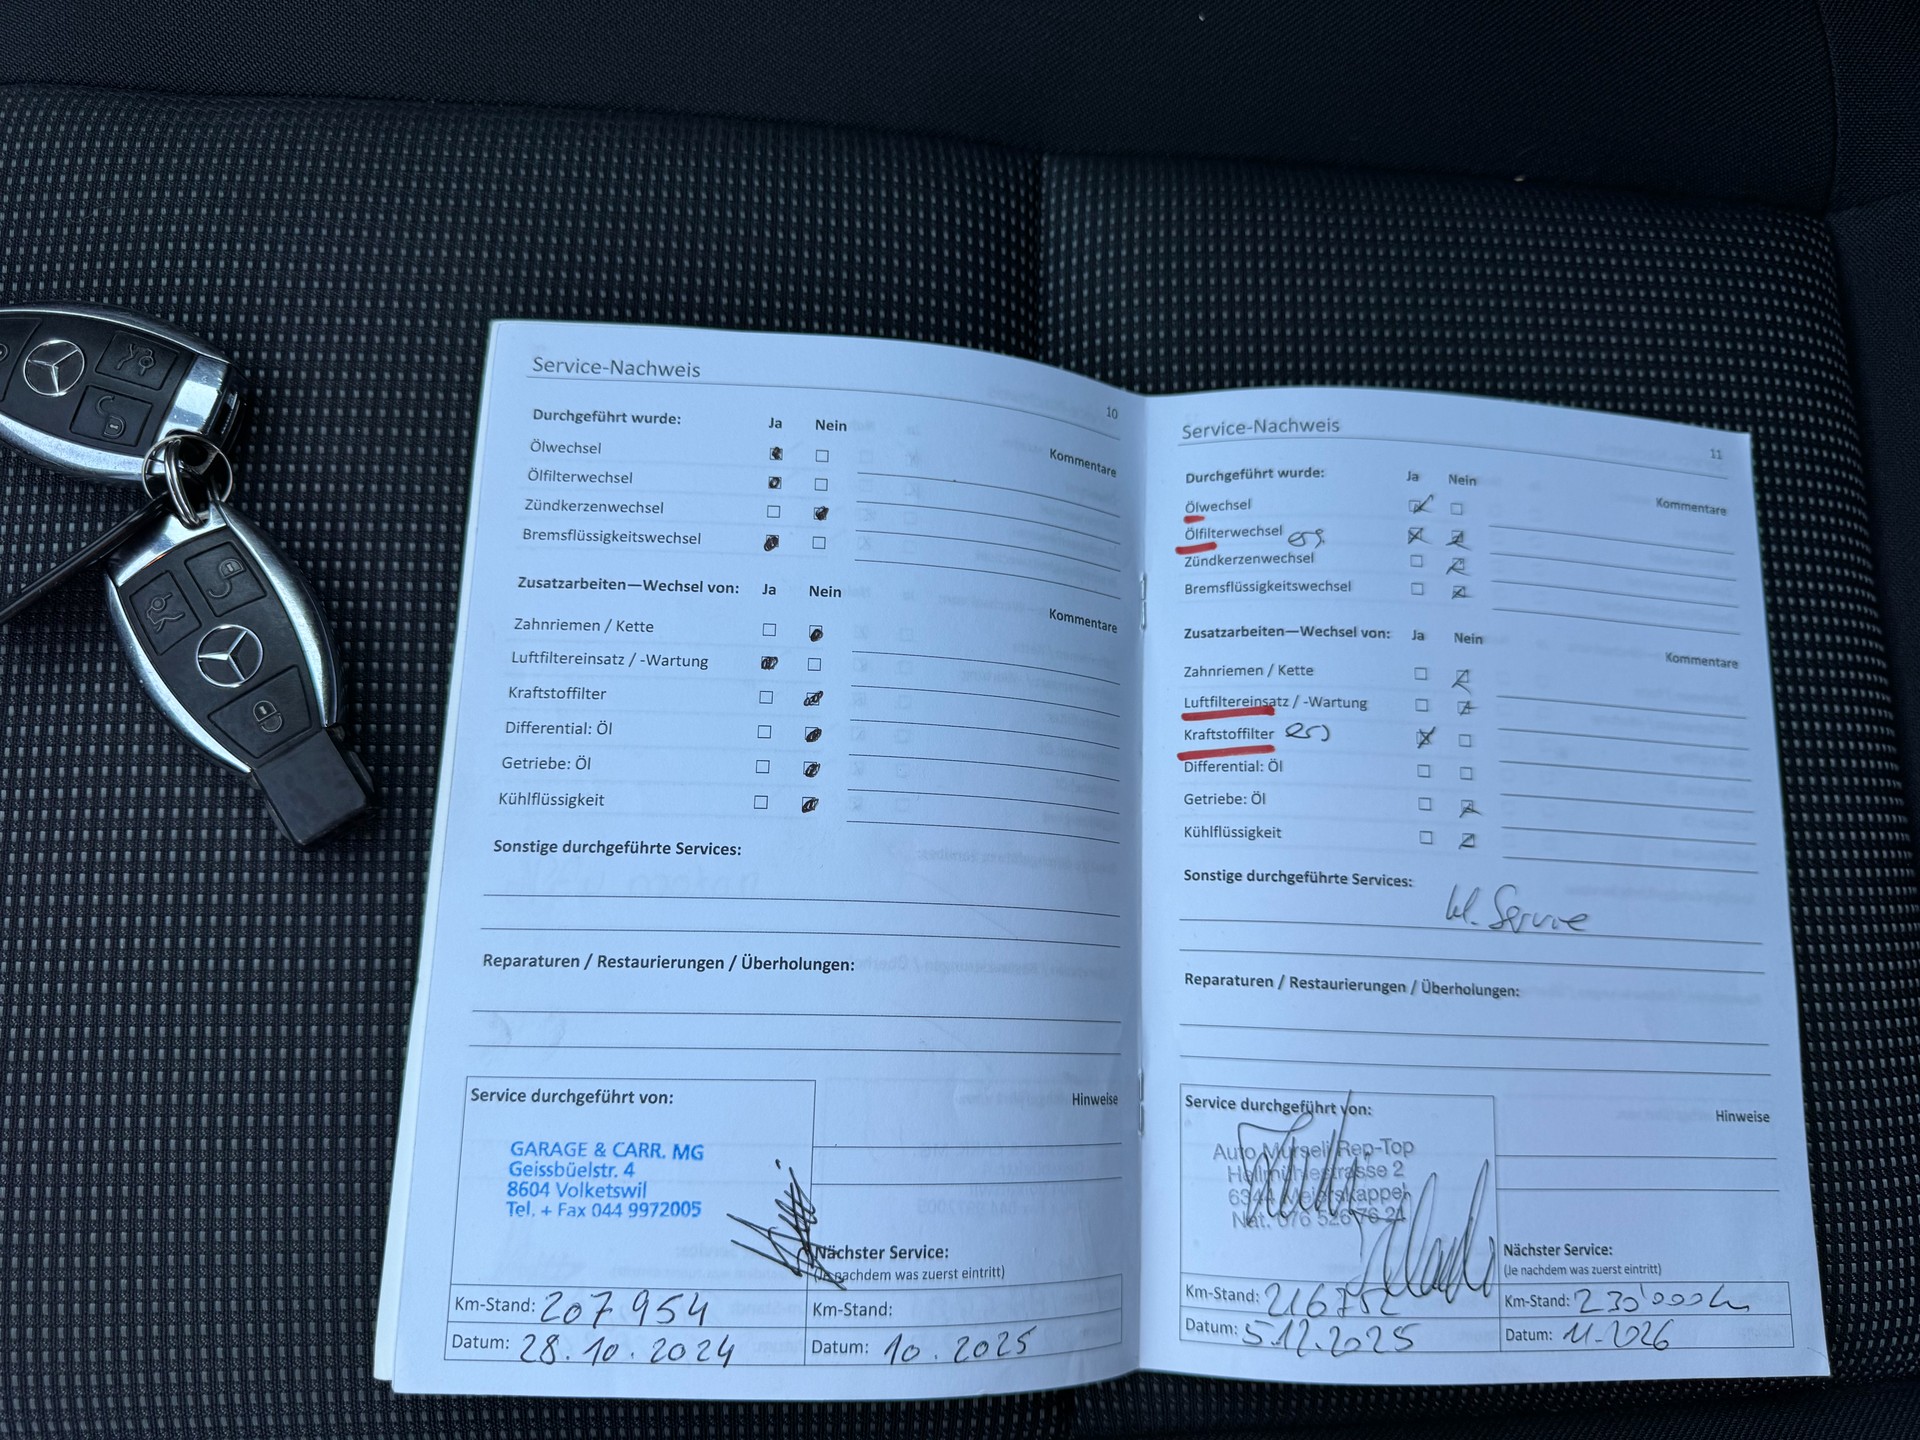 Service-Nachweis
10
Durchgeführt wurde: Ja Nein
Kommentare
Ölwechsel
Ölfilterwechsel
Zündkerzenwechsel
Bremsflüssigkeitswechsel
Zusatzarbeiten—Wechsel von: Ja Nein
Kommentare
Zahnriemen / Kette
Luftfiltereinsatz / -Wartung
Kraftstoffilter
Differential: Öl
Getriebe: Öl
Kühlflüssigkeit
Sonstige durchgeführte Services:
Reparaturen / Restaurierungen / Überholungen:
Service durchgeführt von:
Hinweise
GARAGE & CARR. MG
Geissbüelstr. 4
8604 Volketswil
Tel. + Fax 044 9972005
Nächster Service:
(Je nachdem was zuerst eintritt)
Km-Stand: 207954 Km-Stand:
Datum: 28.10.2024 Datum: 10.2025
Service-Nachweis
11
Durchgeführt wurde: Ja Nein
Kommentare
Ölwechsel
Ölfilterwechsel
Zündkerzenwechsel
Bremsflüssigkeitswechsel
Zusatzarbeiten—Wechsel von: Ja Nein
Kommentare
Zahnriemen / Kette
Luftfiltereinsatz / -Wartung
Kraftstoffilter
Differential: Öl
Getriebe: Öl
Kühlflüssigkeit
Sonstige durchgeführte Services:
kl. Service
Reparaturen / Restaurierungen / Überholungen:
Service durchgeführt von:
Hinweise
Auto Murseli Rep-Top
Hollmühlestrasse 2
6344 Meierskappel
Nat. 076 526 76 21
Nächster Service:
(Je nachdem was zuerst eintritt)
Km-Stand: 216752 Km-Stand: 230'000 km
Datum: 5.12.2025 Datum: 11-2026